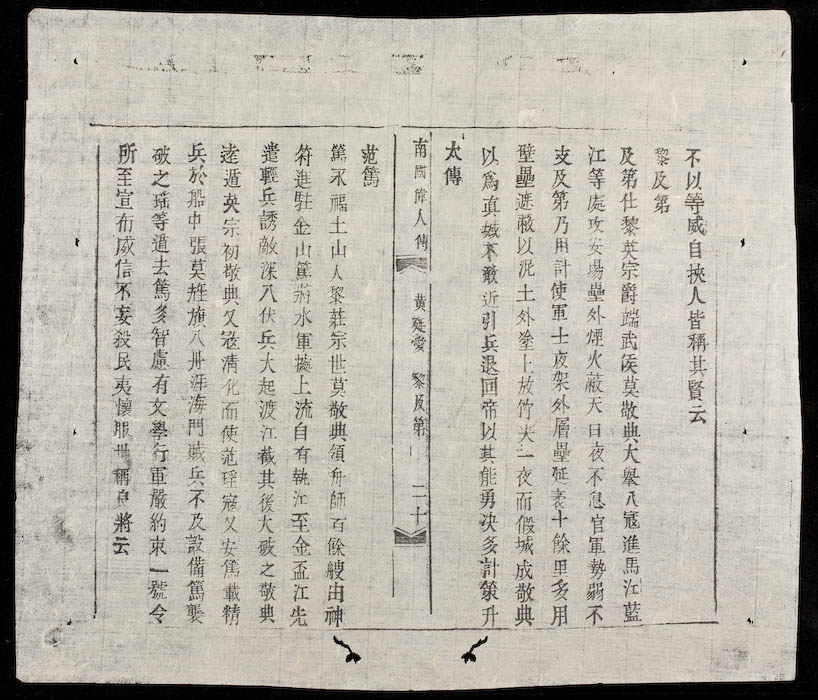 不以等威自挾人皆稱其賢云
黎及第
及第仕黎英宗爵端武侯莫敬典大舉入寇進馬江藍
江等處攻安場壘外煙火蔽天日夜不息官軍勢弱不
支及第乃用計使軍士夜架外層壘延袤十餘里多用
壁壘遮敝以泥土外塗上放竹尖一夜而假城成敬典
以為真城不敢近引兵退回帝以其能勇决多計策升
太傅
南國偉人傳
黃廷愛 黎及第
二十
范篤
篤不福土山人黎莊宗世莫敬典領舟師百餘艘由神
符進駐金山篤將水軍據上流自有執江至金盃江先
遣輕兵誘敵深入伏兵大起渡江截其後大破之敬典
逵遁英宗初敬典又寇清化而使范瑶寇乂安篤載精
兵於船中張莫旌旗入丹涯海門賊兵不及設備篤襲
破之瑶等遁去篤多智慮有文學行軍嚴約束一號令
所至宣布威信不妄殺民夷懷服世稱良將云